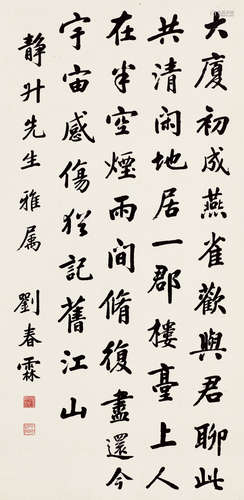 大廈初成燕雀歡與君聊此
共清閑地居一郡樓臺上人
在半空煙雨間脩復盡還今
宇宙感傷猶記舊江山
静升先生雅属
劉春霖